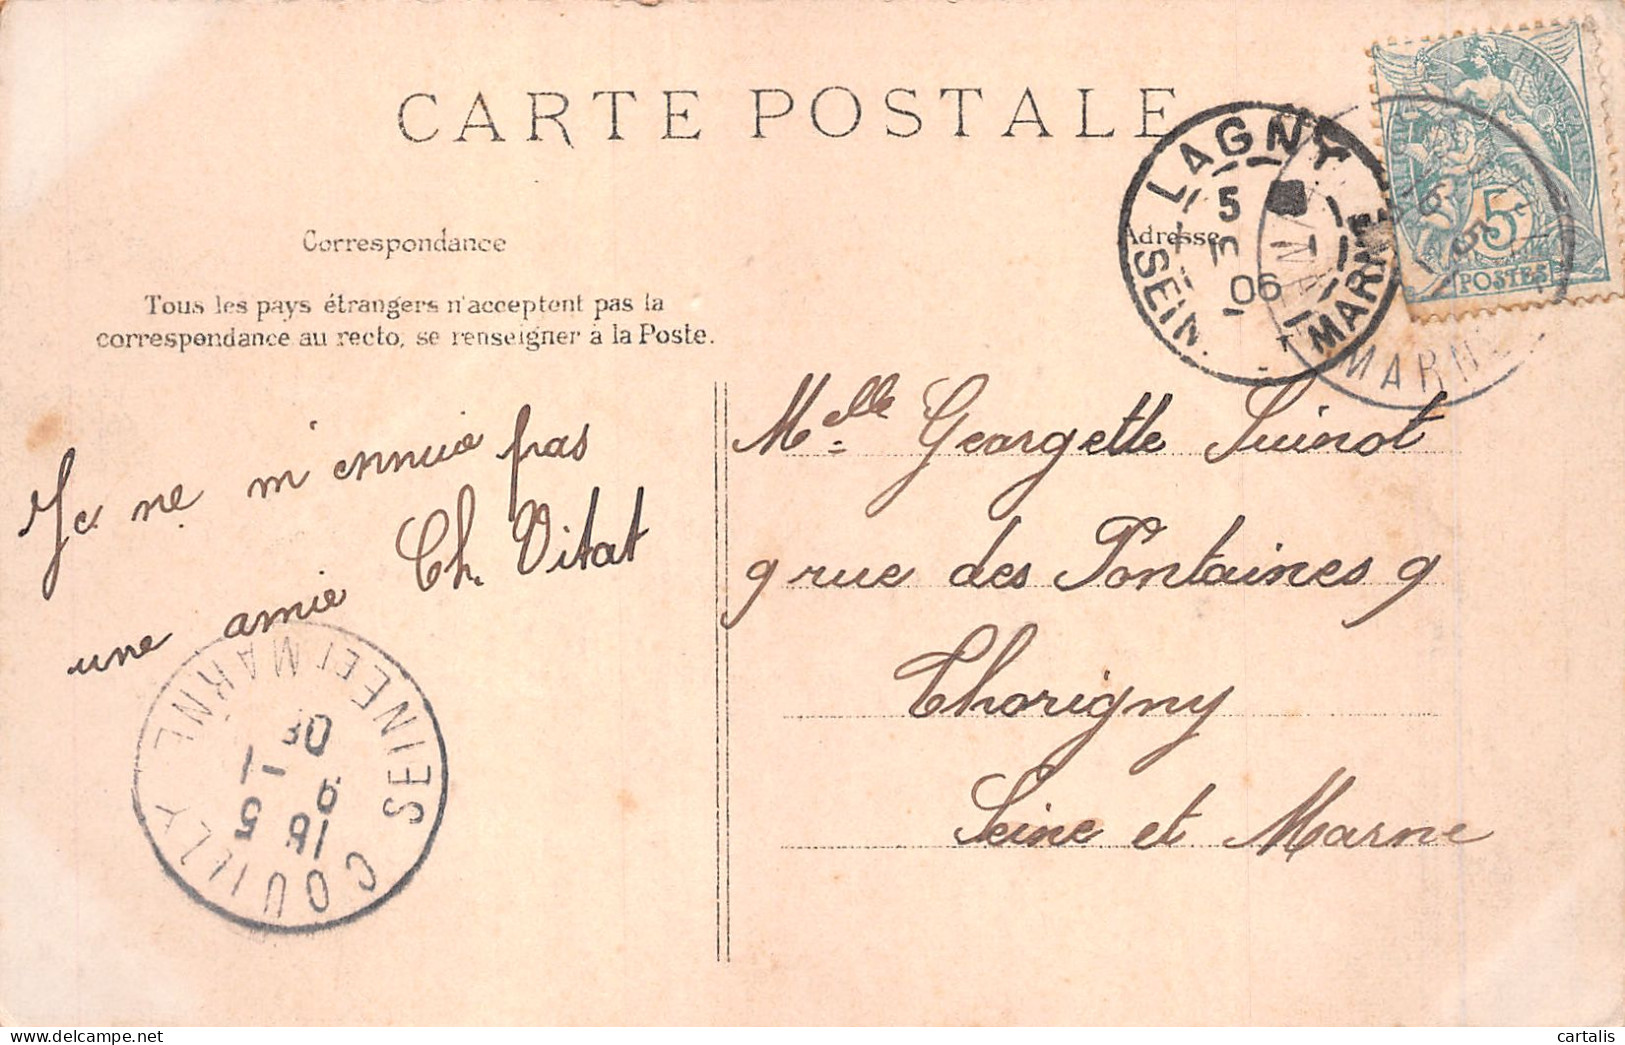 CARTE POSTALE
Correspondance
Adresse
Tous les pays étrangers n'acceptent pas la
correspondance au recto, se renseigner à la Poste.
Je ne m'ennuie pas
une amie Ch. Vitat
Melle Georgette Suinot
9 rue des Fontaines 9
Thorigny
Seine et Marne
LAGNY
5
06
SEIN. MARNE
MARNE
5
POSTES
COUILLY
SEINE ET MARNE
cartalis